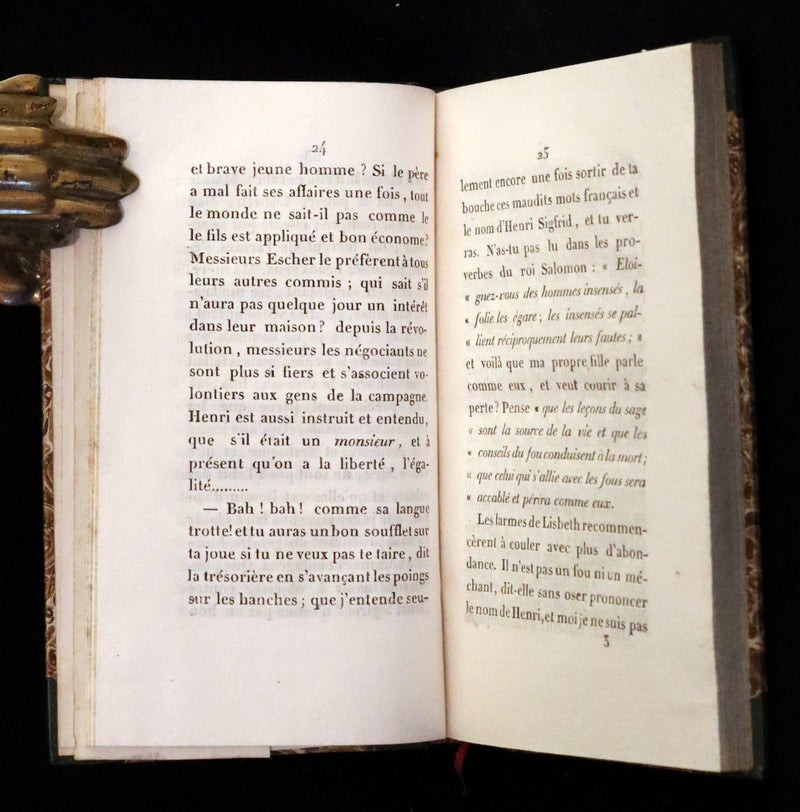 24
et brave jeune homme ? Si le père
a mal fait ses affaires une fois, tout
le monde ne sait-il pas comme le
le fils est appliqué et bon économe?
Messieurs Escher le préfèrent à tous
leurs autres commis ; qui sait s'il
n'aura pas quelque jour un intérêt
dans leur maison? depuis la révo-
lution, messieurs les négociants ne
sont plus si fiers et s'associent vo-
lontiers aux gens de la campagne.
Henri est aussi instruit et entendu,
que s'il était un monsieur, et à
présent qu'on a la liberté, l'éga-
lité.........
— Bah ! bah ! comme sa langue
trotte! et tu auras un bon soufflet sur
ta joue si tu ne veux pas te taire, dit
la trésorière en s'avançant les poings
sur les hanches ; que j'entende seu-
25
lement encore une fois sortir de ta
bouche ces maudits mots français et
le nom d'Henri Sigfrid, et tu ver-
ras. N'as-tu pas lu dans les pro-
verbes du roi Salomon : « Eloi-
« gnez-vous des hommes insensés, la
« folie les égare ; les insensés se pal-
« lient réciproquement leurs fautes ; »
et voilà que ma propre fille parle
comme eux, et veut courir à sa
perte? Pense « que les leçons du sage
« sont la source de la vie et que les
« conseils du fou conduisent à la mort ;
« que celui qui s'allie avec les fous sera
« accablé et périra comme eux.
Les larmes de Lisbeth recommen-
cèrent à couler avec plus d'abon-
dance. Il n'est pas un fou ni un mé-
chant, dit-elle sans oser prononcer
le nom de Henri, et moi je ne suis pas
3